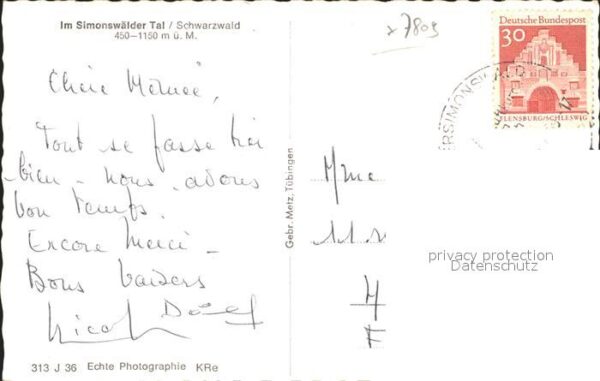 Im Simonswälder Tal / Schwarzwald
450–1150 m ü. M.
x 7809
Deutsche Bundespost
30
FLENSBURG/SCHLESWIG
ERSIMONSWALD
Chère
Tout se passe très
bien - nous avons
bon temps.
Encore Merci -
Bons baisers
Gebr. Metz, Tübingen
Mme
privacy protection
Datenschutz
313 J 36 Echte Photographie KRe